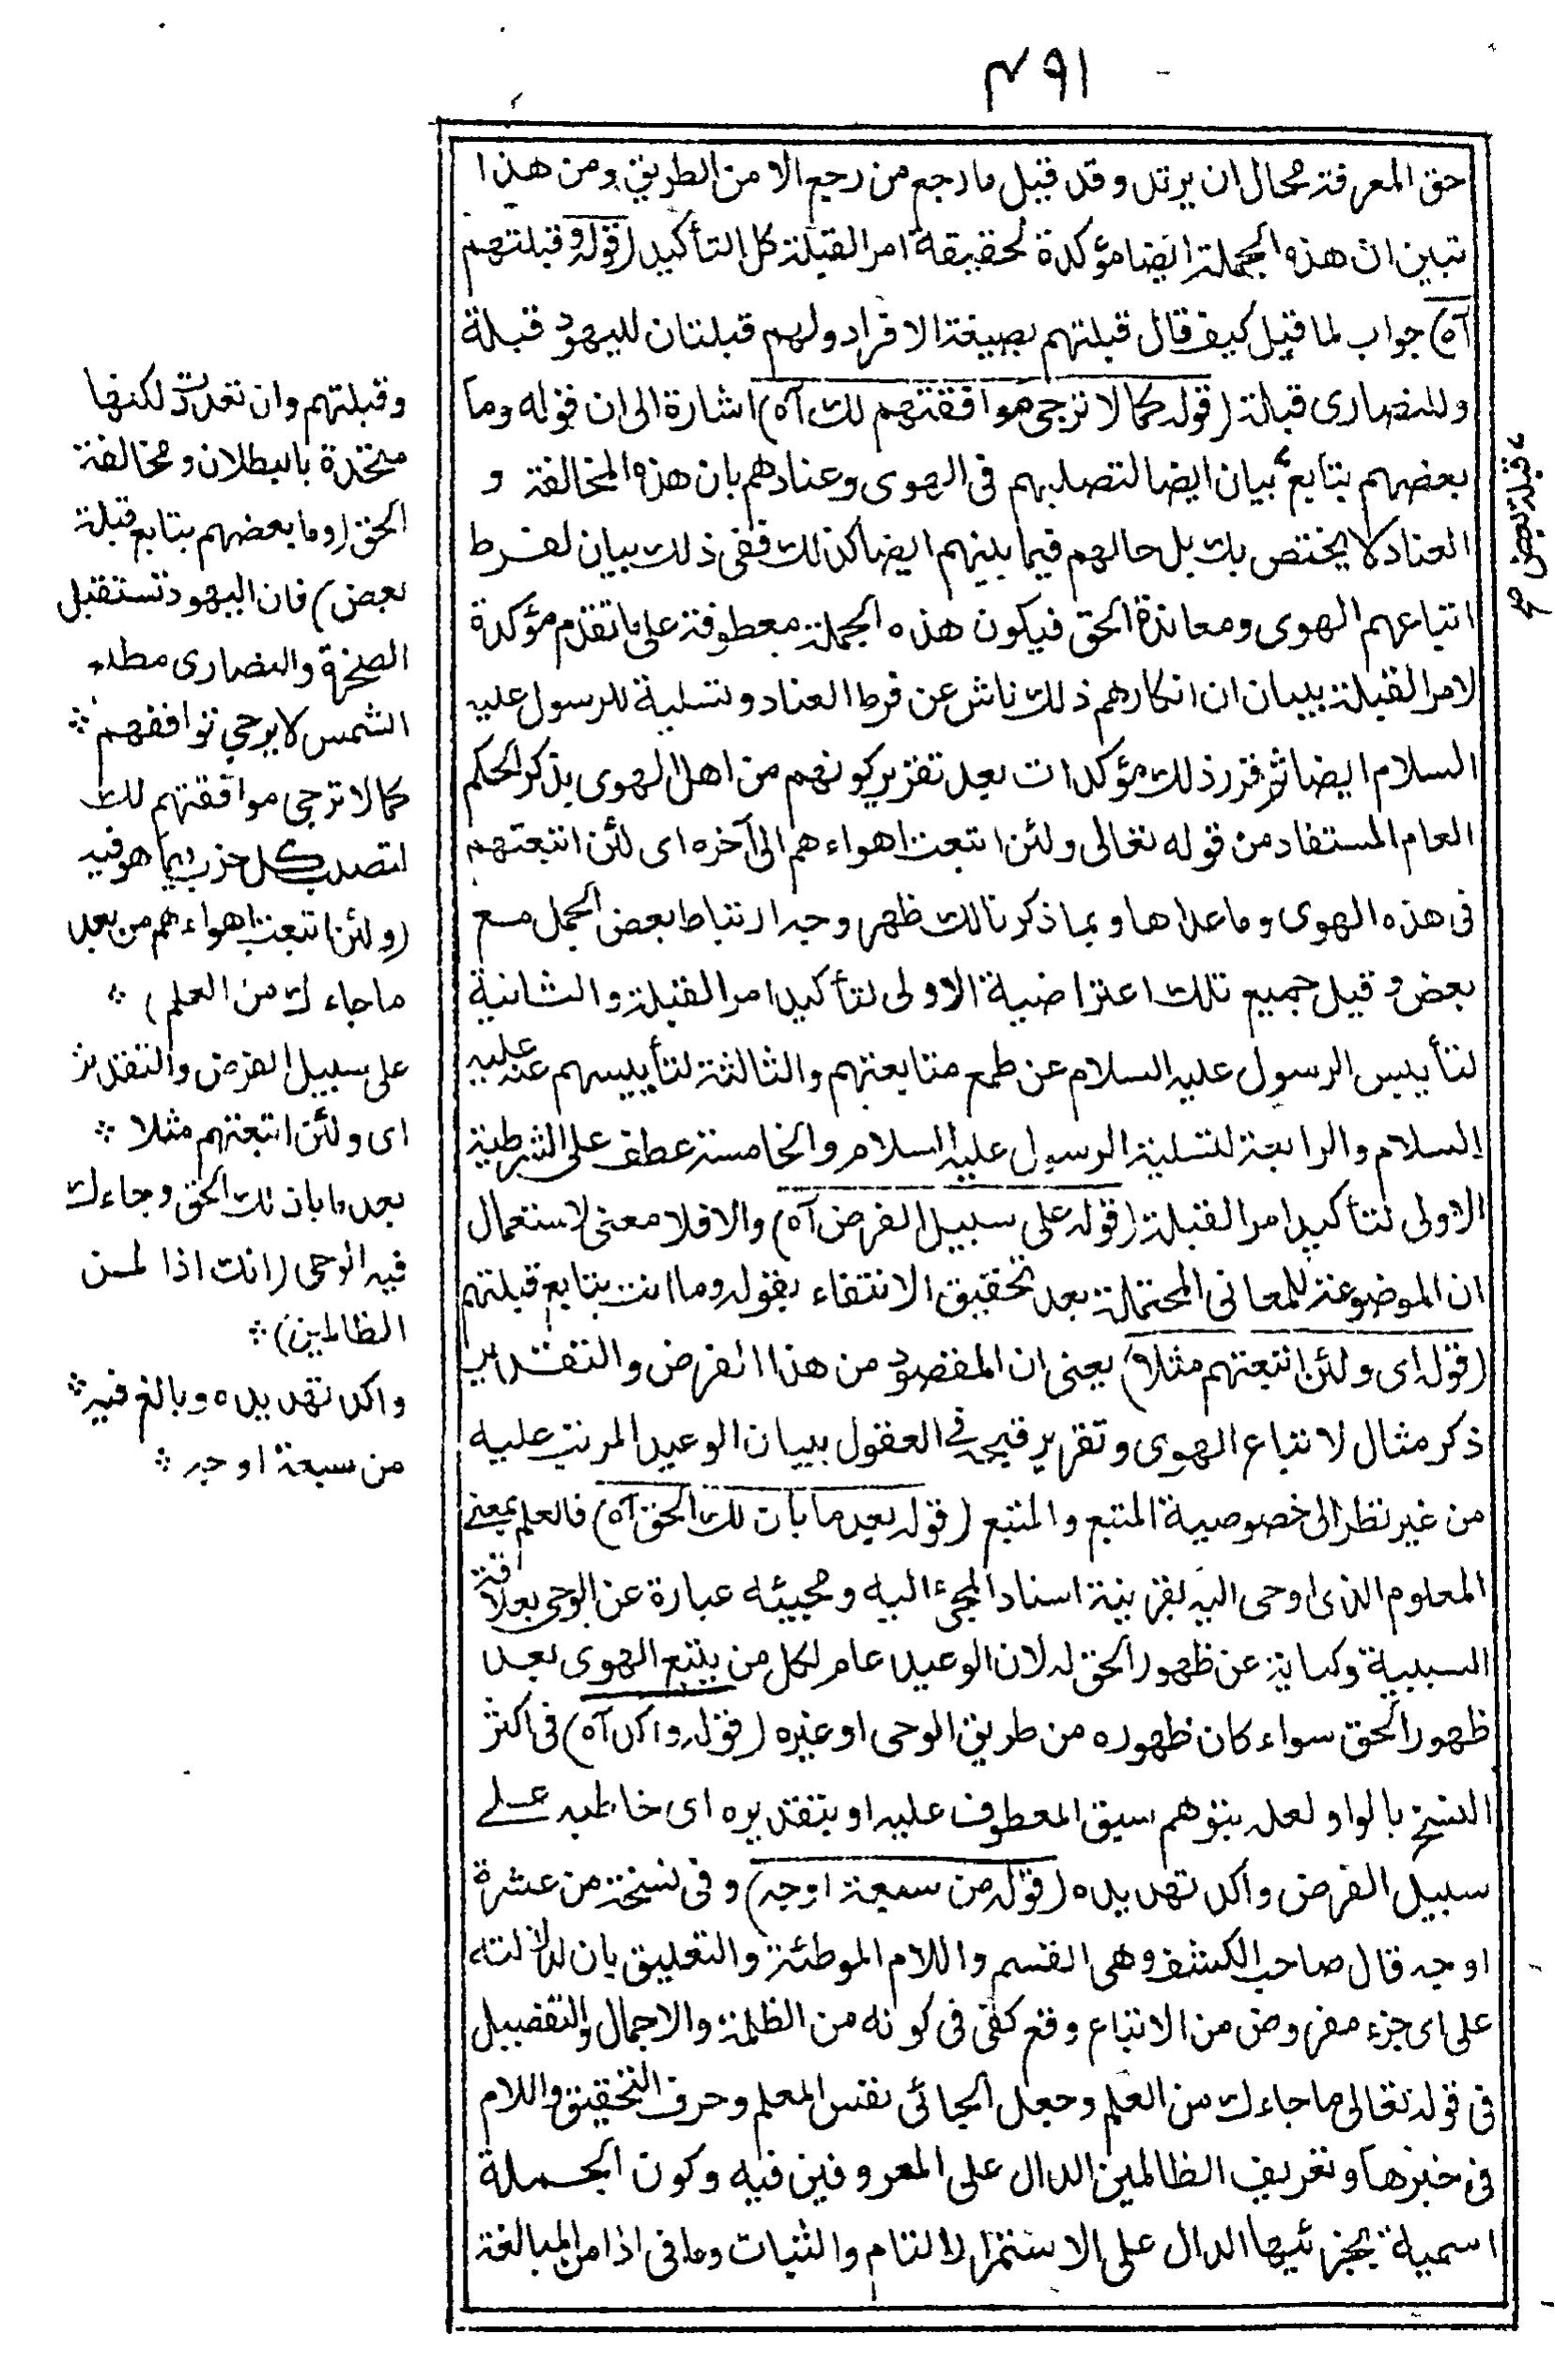 ٤٩١
حق المعرفة محال ان يرتد وقد قيل ما رجع من رجع الا من الطريق ومن هذا
تبين ان هذه الجملة ايضا مؤكدة لحقيقة امر القبلة كل التأكيد (قوله وقبلتهم
آه) جواب لما قيل كيف قال قبلتهم بصيغة الافراد ولهم قبلتان لليهود قبلة
وللنصارى قبلة (قوله كما لا ترجى موافقتهم لك آه) اشارة الى ان قوله وما
بعضهم بتابع بيان ايضا لتصلبهم فى الهوى وعنادهم بان هذه المخالفة و
العناد لا يختص بك بل حالهم فيما بينهم ايضا كذلك ففى ذلك بيان لفرط
اتباعهم الهوى ومعاندة الحق فيكون هذه الجملة معطوفة على ما تقدم مؤكدة
لامر القبلة ببيان ان انكارهم ذلك ناش عن فرط العناد وتسلية للرسول عليه
السلام ايضا ثم قرر ذلك مؤكدات بعد تقرير كونهم من اهل الهوى بذكر الحكم
العام المستفاد من قوله تعالى ولئن اتبعت اهواءهم الى آخره اى لئن اتبعتهم
فى هذه الهوى وما عداها وبما ذكرنا لك ظهر وجه ارتباط بعض الجمل مع
بعض وقيل جميع تلك اعتراضية الاولى لتأكيد امر القبلة والثانية
لتأييس الرسول عليه السلام عن طمع متابعتهم والثالثة لتأييسهم عنه عليه
السلام والرابعة لتسلية الرسول عليه السلام والخامسة عطف على الشرطية
الاولى لتأكيد امر القبلة (قوله على سبيل الفرض آه) والا فلا معنى لاستعمال
ان الموضوعة للمعانى المحتملة بعد تحقيق الانتفاء بقوله وما انت بتابع قبلتهم
(قوله اى ولئن اتبعتهم مثلا) يعنى ان المقصود من هذا الفرض والتقدير
ذكر مثال لاتباع الهوى وتقرير قبحه فى العقول ببيان الوعيد المرتب عليه
من غير نظر الى خصوصية المتبع والمتبع (قوله بعد ما بان لك الحق آه) فالعلم بمعنى
المعلوم الذى اوحى اليه بقرينة اسناد المجئ اليه ومجيئه عبارة عن الوحى بعلاقة
السببية وكناية عن ظهور الحق له لان الوعيد عام لكل من يتبع الهوى بعد
ظهور الحق سواء كان ظهوره من طريق الوحى او غيره (قوله واكد آه) فى اكثر
النسخ بالواو لعله بتوهم سبق المعطوف عليه او بتقديره اى خاطبه على
سبيل الفرض واكد تهديده (قوله من سبعة اوجه) وفى نسخة من عشرة
اوجه قال صاحب الكشف وهى القسم واللام الموطئة والتعليق بان لدلالته
على اى جزء مفروض من الاتباع وقع كفى فى كونه من الظلمة والاجمال والتفصيل
فى قوله تعالى ما جاءك من العلم وجعل الجائى نفس العلم وحرف التحقيق واللام
فى خبرها وتعريف الظالمين الدال على المعروفين فيه وكون الجملة
اسمية بجزئيها الدال على الاستمرار التام والثبات وما فى اذا من المبالغة
وقبلتهم وان تعددت لكنها
متحدة بالبطلان ومخالفة
الحق (وما بعضهم بتابع قبلة
بعض) فان اليهود تستقبل
الصخرة والنصارى مطلع
الشمس لا يرجى توافقهم
كما لا ترجى موافقتهم لك
لتصلب كل حزب فيما هو فيه
(ولئن اتبعت اهواءهم من بعد
ما جاءك من العلم)
على سبيل الفرض والتقدير
اى ولئن اتبعتهم مثلا
بعد ما بان لك الحق وجاءك
فيه الوحى (انك اذا لمن
الظالمين)
واكد تهديده وبالغ فيه
من سبعة اوجه
قبلة بعض